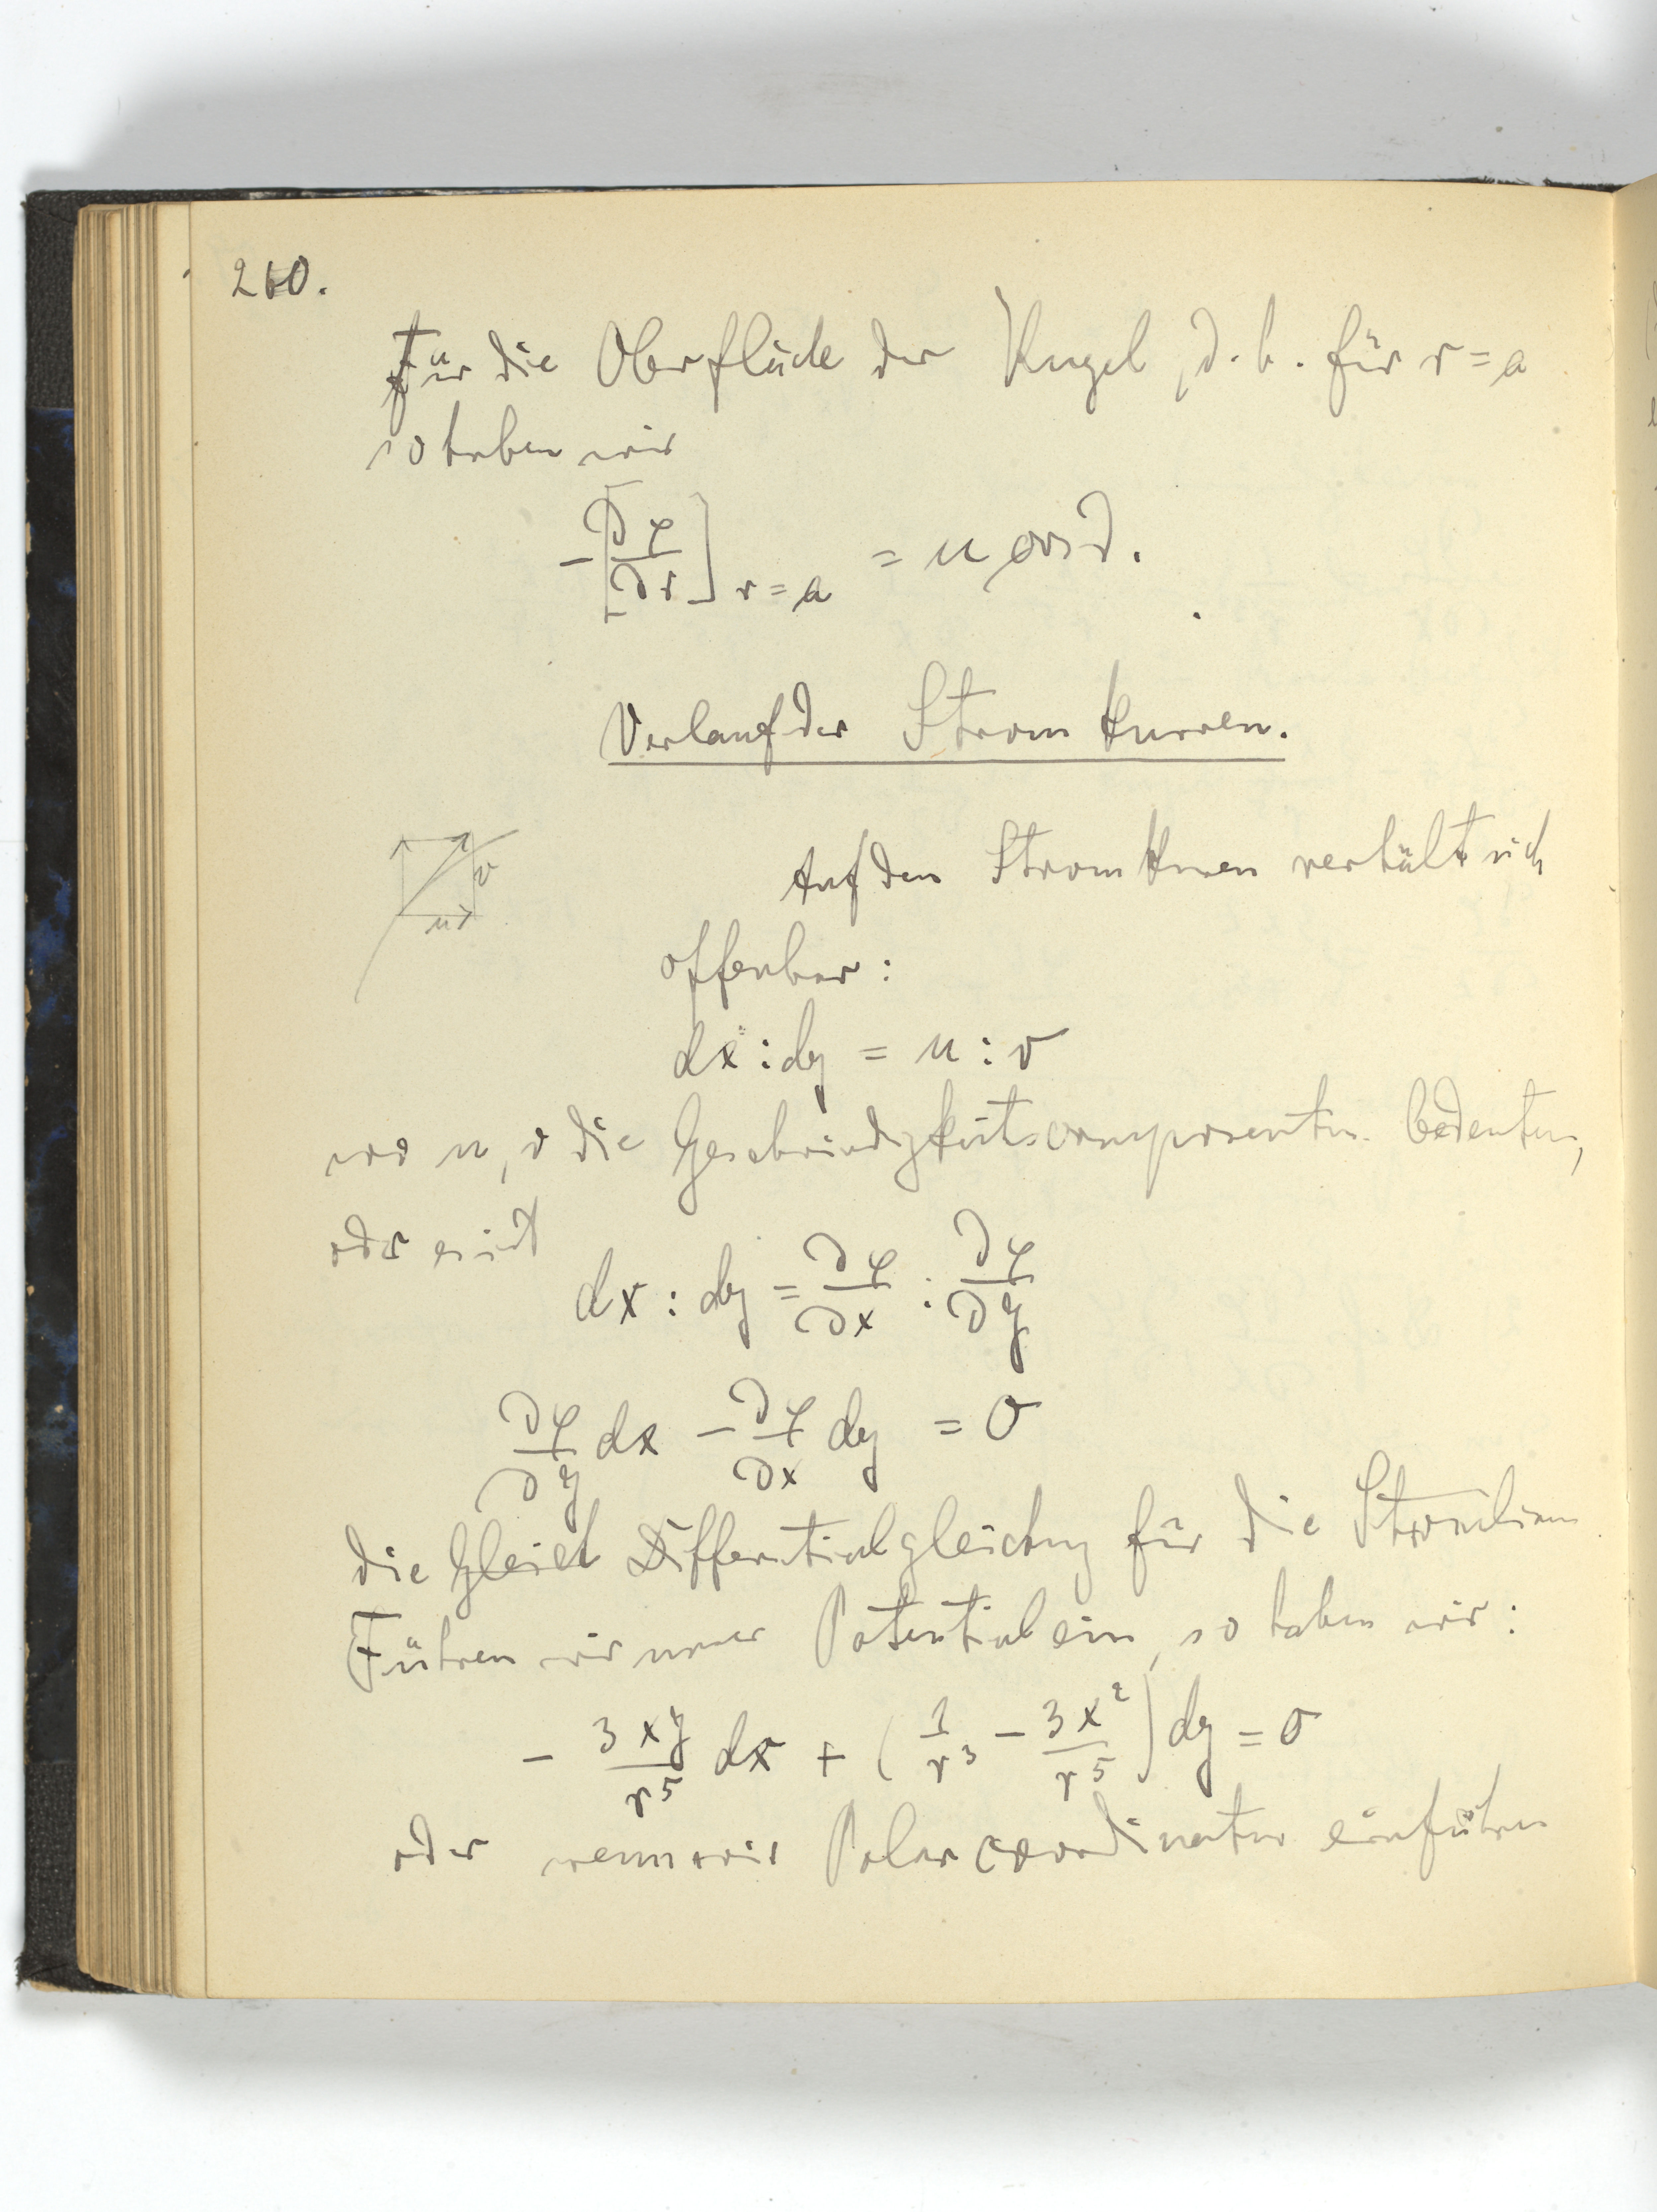 260.
Für die Oberfläche der Kugel, d.h. für r = a
so haben wir
-[∂φ/∂r] r=a = u cos ϑ.
Verlauf der Stromkurven.
Auf den Stromkurven verhält sich
v
u
offenbar:
dx : dy = u : v
wo u, v die Geschwindigkeitscomponenten bedeuten,
oder es ist
dx : dy = ∂φ/∂x : ∂φ/∂y
∂φ/∂y dx - ∂φ/∂x dy = 0
die Gleich Differentialgleichung für die Stromlinien
Führen wir unser Potential ein, so haben wir:
- 3xy/r⁵ dx + (1/r³ - 3x²/r⁵) dy = 0
oder wenn wir Polarcoordinaten einführen